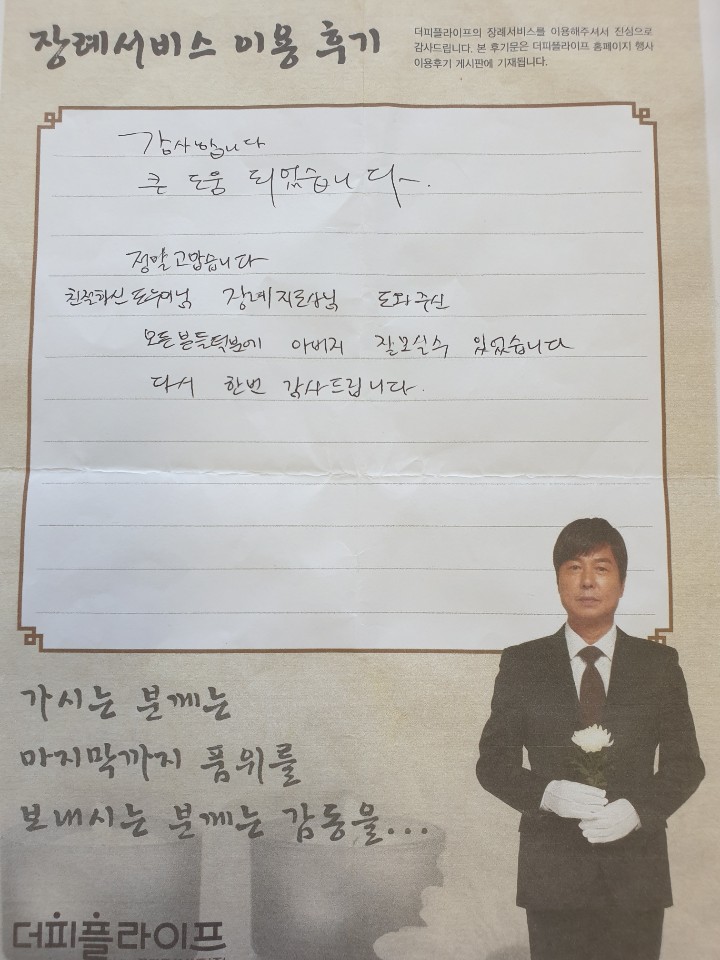 장례서비스 이용 후기
더피플라이프의 장례서비스를 이용해주셔서 진심으로
감사드립니다. 본 후기문은 더피플라이프 홈페이지 행사
이용후기 게시판에 기재됩니다.
감사합니다
큰 도움 되었습니다~.
정말 고맙습니다
친절하신 도우미님 장례지도사님 도와주신
모든분들덕분에 아버지 잘모실수 있었습니다
다시 한번 감사드립니다.
가시는 분께는
마지막까지 품위를
보내시는 분께는 감동을...
더피플라이프